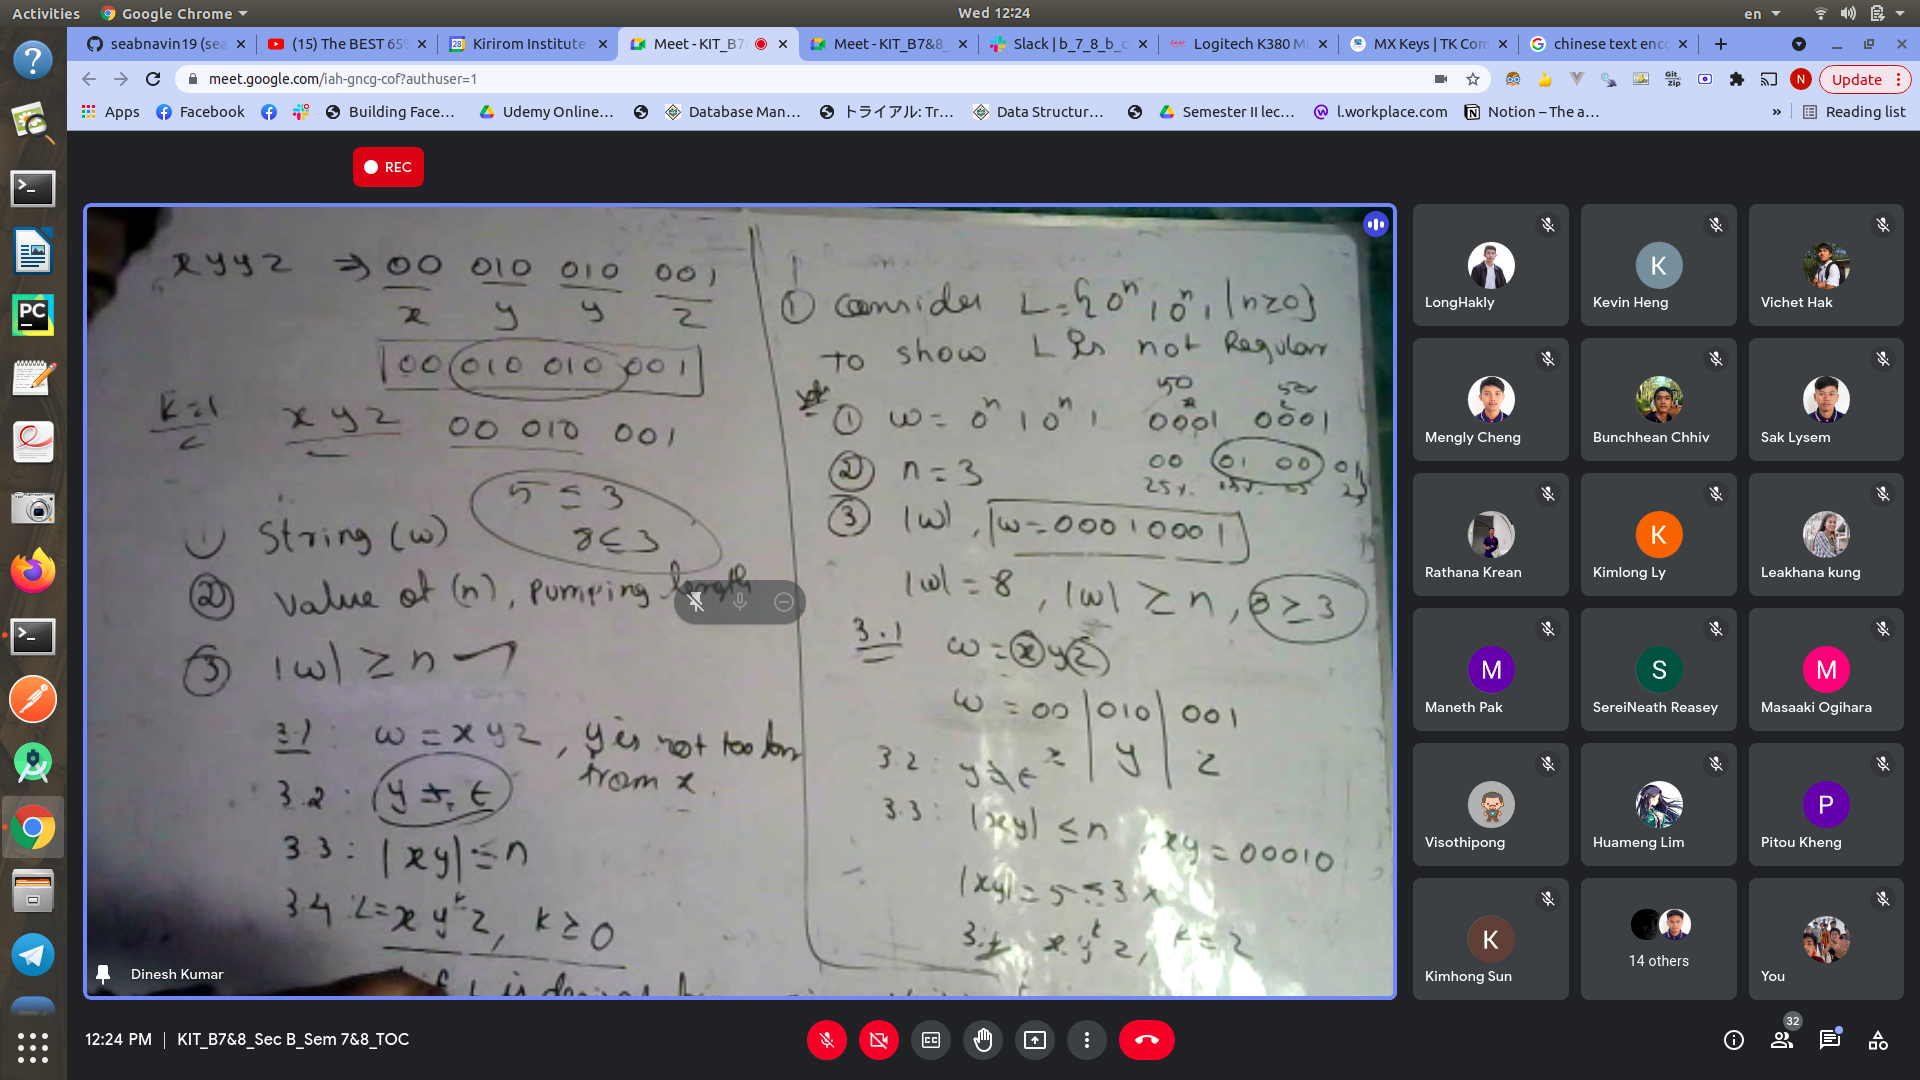 Activities Google Chrome Wed 12:24 en
seabnavin19 (sea (15) The BEST 65% Kirirom Institute Meet - KIT_B7 Meet - KIT_B7&8_ Slack | b_7_8_b_c Logitech K380 M MX Keys | TK Com chinese text enc
meet.google.com/iah-gncg-cof?authuser=1 Update
Apps Facebook Building Face... Udemy Online... Database Man... トライアル: Tr... Data Structur... Semester II lec... l.workplace.com Notion – The a... » Reading list
REC
x y y z ⇒ 00 010 010 001
x y y z
00 010 010 001
K=1 x y z 00 010 001
5 ≤ 3
8 ≤ 3
① String (w)
② value of (n), pumping length
③ |w| ≥ n
3.1: w = x y z, y is not too
from x.
3.2: y ≠ ε
3.3: |xy| ≤ n
3.4 L = x y^k z, k ≥ 0
① consider L = { 0^n 1 0^n 1 | n ≥ 0}
to show L is not Regular
① w = 0^n 1 0^n 1 0001 0001
② n = 3 00 01 00 01
③ |w|, w = 00010001
|w| = 8, |w| ≥ n, 8 ≥ 3
3.1 w = x y z
w = 00 | 010 | 001
x | y | z
3.2: y ≠ ε
3.3: |xy| ≤ n, xy = 00010
|xy| = 5 ≤ 3 x
x y^k z, k = 2
Dinesh Kumar
LongHakly
Kevin Heng
Vichet Hak
Mengly Cheng
Bunchhean Chhiv
Sak Lysem
Rathana Krean
K
Kimlong Ly
Leakhana kung
M
Maneth Pak
S
SereiNeath Reasey
M
Masaaki Ogihara
Visothipong
Huameng Lim
P
Pitou Kheng
K
Kimhong Sun
14 others
You
12:24 PM | KIT_B7&8_Sec B_Sem 7&8_TOC
32